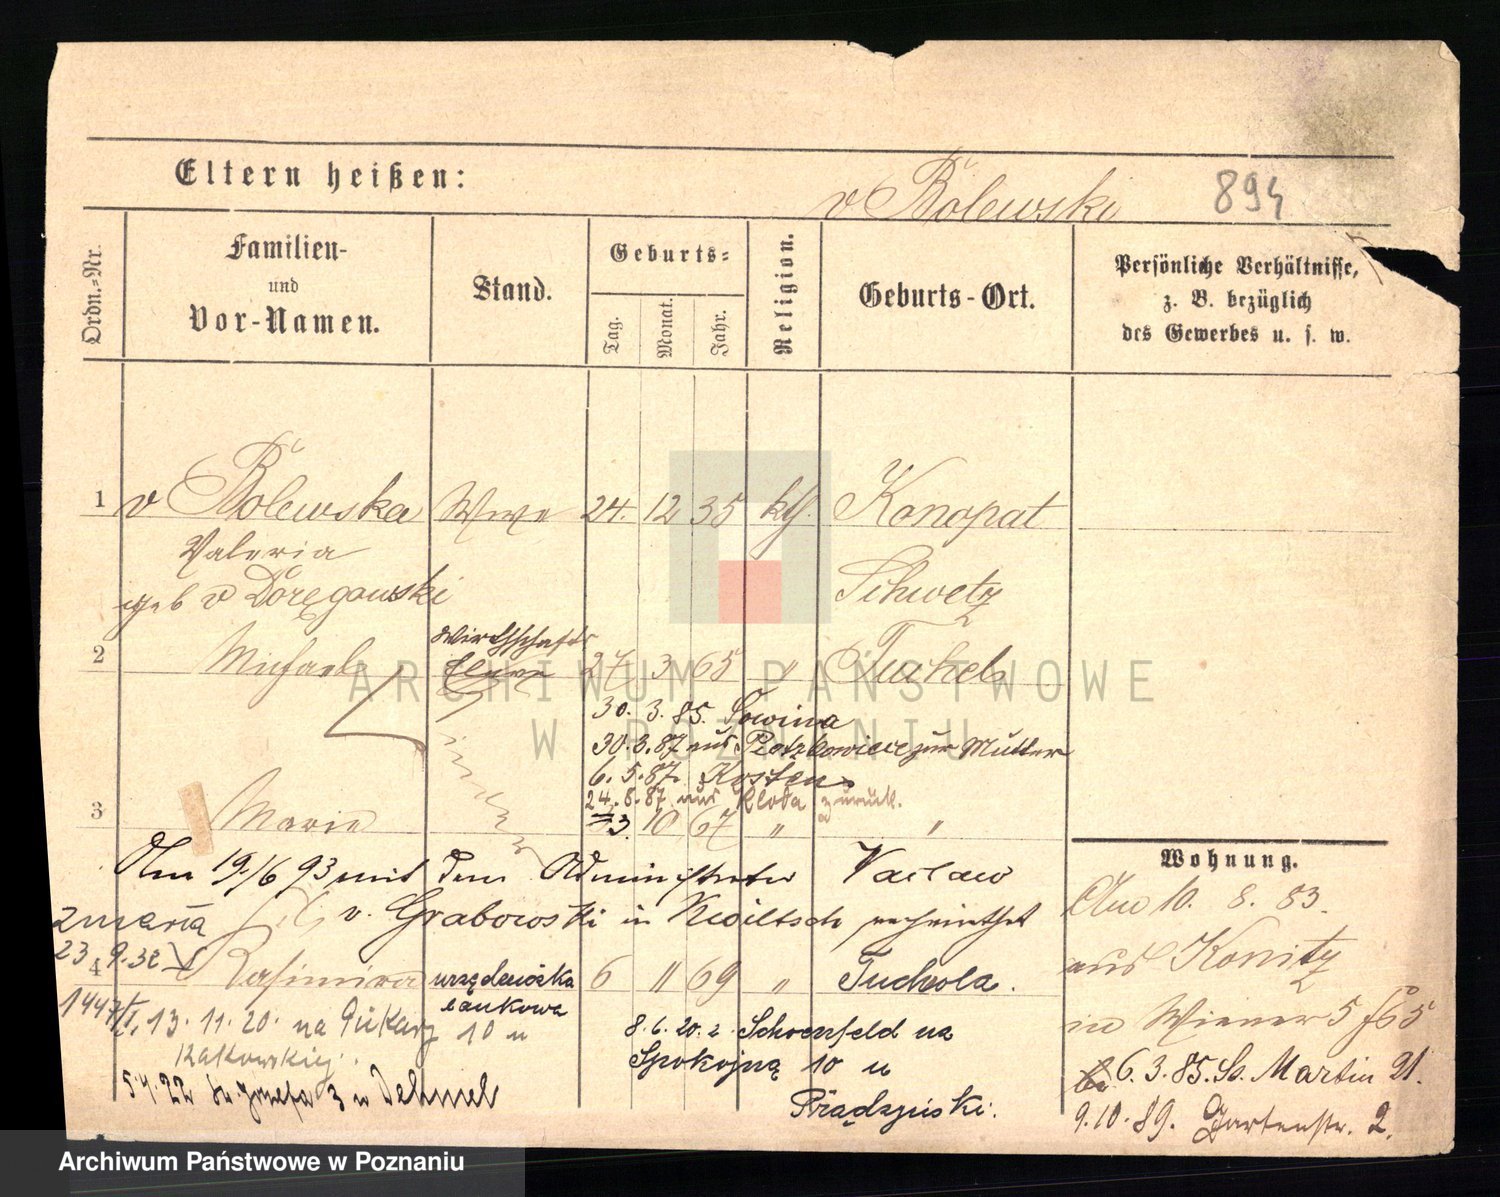 Eltern heißen:
v Bolewski
894
Ordn.-Nr.
Familien-
und
Vor-Namen.
Stand.
Geburts-
Tag.
Monat.
Jahr.
Religion.
Geburts-Ort.
Persönliche Verhältnisse,
z. B. bezüglich
des Gewerbes u. s. w.
1 v Bolewska Wwe 24. 12 35 kth. Konopat
Valeria
Schwetz
geb v
Wirthschafts
2 Michael Eleve 27 3 65 " Tuchel
30. 3. 85. Sowina
30. 3. 87 aus zur Mutter
6. 5. 87. Kosten
24. 8. 87 aus Kloda zurück.
kinder
3 Marie 10 67 " "
Am 19/6 93 mit dem Administrator Vaclaw
v. Grabowski in Kwiltsch verheirathet
zmarła
23 9. 32
4 Kasimira urzędniczka 6 " 69 " Tuchola.
bankowa
1447/I, 13. 11. 20. na Piekary 10 u
Rakowskiej.
8. 6. 20. z Schoenfeld na
Spokojną 10 u
Prądzyński.
5. 4. 22 św Józefa 3 u
Wohnung.
Am 10. 8. 83.
aus Konitz
in Wiener 5
6. 3. 85. St. Martin 21.
9. 10. 89. Gartenstr. 2.
ARCHIWUM PAŃSTWOWE
W POZNANIU
Archiwum Państwowe w Poznaniu